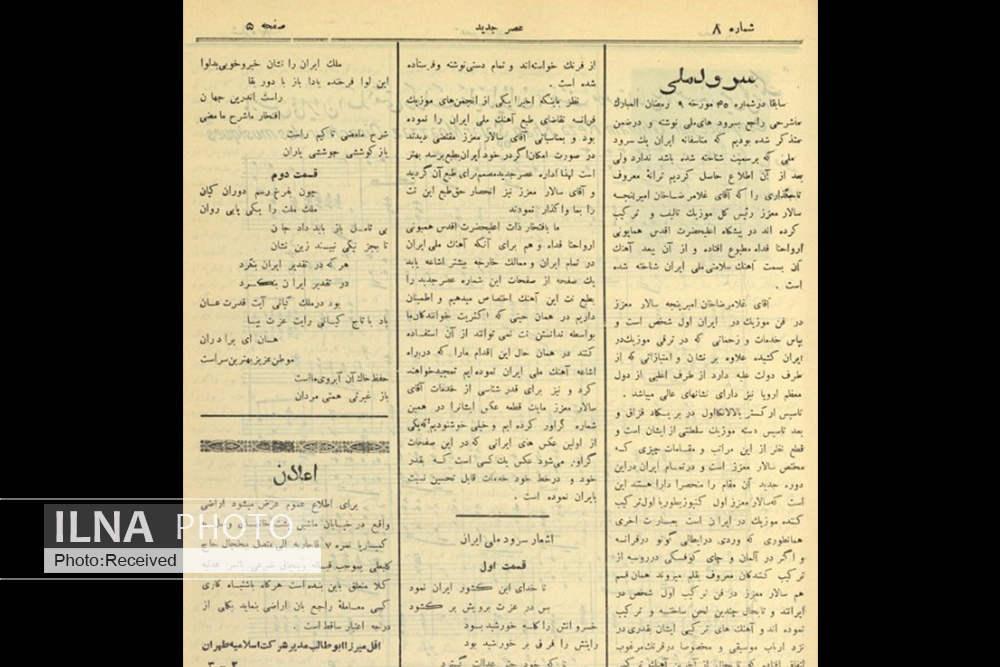 شماره ۸
عصر جدید
صفحه ۵
سرود ملی
سابقا در شماره ۳۵ مورخه ۹ رمضان المبارك
شرحی راجع بسرود های ملی نوشته و درضمن
متذکر شده بودیم که متاسفانه ایران یك سرود
ملی که برسمیت شناخته شده باشد ندارد ولی
بعد از آن اطلاع حاصل کردیم ترانهٔ معروف
تاجگذاری را که آقای غلامرضاخان امیرپنجه
سالار معزز رئیس کل موزیك تالیف و ترکیب
کرده اند در پیشگاه اعلیحضرت اقدس همایونی
ارواحنا فداه مطبوع افتاده و از آن ببعد آهنك
آن بسمت آهنك سلامتی ملی ایران شناخته شده
است .
آقای غلامرضاخان امیرپنجه سالار معزز
در فن موزیك در ایران اول شخص است و
بپاس خدمات و زحماتی که در ترقی موزیك در
ایران کشیده علاوه بر نشان و امتیازاتی که از
طرف دولت علیه دارد از طرف اغلبی از دول
معظم اروپا نیز دارای نشانهای عالی میباشد .
تاسیس ارکستر بالالائکااول در بریگاد قزاق و
بعد تاسیس دسته موزیك سلطنتی از ایشان است و
قطع نظر از این مراتب و مقامات چیزی که
مختص سالار معزز است و درتمام ایران دراین
دوره جدید آن مقام را منحصرا دارا هستند این
است که سالار معزز اول کنپوزیطوریا اول ترکیب
کننده موزیك در ایران است بعبارت اخری
همانطوری که وردی درایطالی گونو درفرانسه
و اگنر در آلمان و چای کوفسکی درروسیه از
ترکیب کنندگان معروف بقلم میروند همان قسم
هم سالار معزز در فن ترکیب اول شخص در
ایرانند و تابحال چندین لحن ساخته و ترکیب
نموده اند و آهنك های ترکیبی ایشان بقدری در
نزد ارباب موسیقی و مخصوصا درفرنك مرغوب
اتفاق افتاده که تا حال از آخرین آهنك ترکیب
از فرنك خواسته‌اند و تمام دستی نوشته وفرستاده
شده است .
نظر باینکه اخیرا یکی از انجمن‌های موزیك
فرانسه تقاضای طبع آهنك ملی ایران را نموده
بود و بمناسباتی آقای سالار معزز مقتضی دیدند
در صورت امکان اگر در خود ایران بطبع برسد بهتر
است لهذا اداره عصر جدید مصمم برای طبع آن گردید
و آقای سالار معزز نیز انحصار حق طبع این نت
را بما واگذار نمودند
ما بافتخار ذات اعلیحضرت اقدس همیونی
ارواحنا فداه و هم برای آنکه آهنك ملی ایران
در تمام ایران و ممالك خارجه بیشتر اشاعه یابد
یك صفحه از صفحات این شماره عصر جدید را
بطبع نت این آهنك اختصاص میدهیم و اطمینان
داریم در همان حینی که اکثریت خوانندگان ما
بواسطه ندانستن نت نمی توانند از آن استفاده
کنند در همان حال این اقدام مارا که درراه
اشاعه آهنك ملی ایران نموده ایم تمجیدخواهند
کرد و نیز برای قدر شناسی از خدمات آقای
سالار معزز مایك قطعه عکس ایشانرا در همین
شماره گراور کرده ایم و خیلی خوشنودیم که یکی
از اولین عکس های ایرانی که در این صفحات
گراور می‌شود عکس یك کسی است که بقدر
خود و درخط خود خدمات قابل تحسین نسبت
بایران نموده است .
اشعار سرود ملی ایران
قسمت اول
تا خدای این کشور ایران نمود
بس در عزت برویش بر گشود
خسروانش را کلمه خورشید بود
رایتش را فر قی بر خورشید بود
تا که خود چتر عدالت گسترد
ملك ایران را نشان خیروخوبی بدلوا
این لوا فرخنده بادا باز با دور بقا
راست اندرین جهان
افتخار ماشرح ما مضی
شرح مامضی تا کیم راست
باز کوششی جوششی یاران
قسمت دوم
چون بفرخ رسم دوران کیان
ملك ملت را یکی یابی روان
بی تامل باز باید داد جان
تا بجز نیکی نبینند زین نشان
هر که در تقدیر ایران بنگرد
در تقدیر ایران بنگرد
بود درملك کیانی آیت قدرت عیان
باد با تاج کیانی رایت عزت بپا
هان ای برادران
موطن عزیز بهترین سراست
حفظ خاك آن آبروی ماست
باز غیرتی همتی مردان
اعلان
برای اطلاع عموم عرض میشود اراضی
واقع در خیابان ماشین
کمیساریا نمره ۷ متصل بیخچال حاج
کلبعلی بموجب قباله
کلا متعلق باین بنده است هرگاه باشتباه کاری
کسی معاملهٔ راجع بان اراضی بنماید بکلی از
درجه اعتبار ساقط است .
اقل میرزا ابوطالب مدیر شرکت اسلامیه طهران
۲ – ۳
ILNA PHOTO
Photo:Received